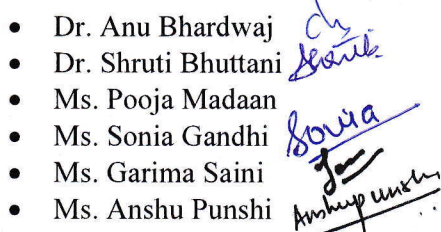 • Dr. Anu Bhardwaj
• Dr. Shruti Bhuttani
• Ms. Pooja Madaan
• Ms. Sonia Gandhi Sonia
• Ms. Garima Saini
• Ms. Anshu Punshi Anshupunshi